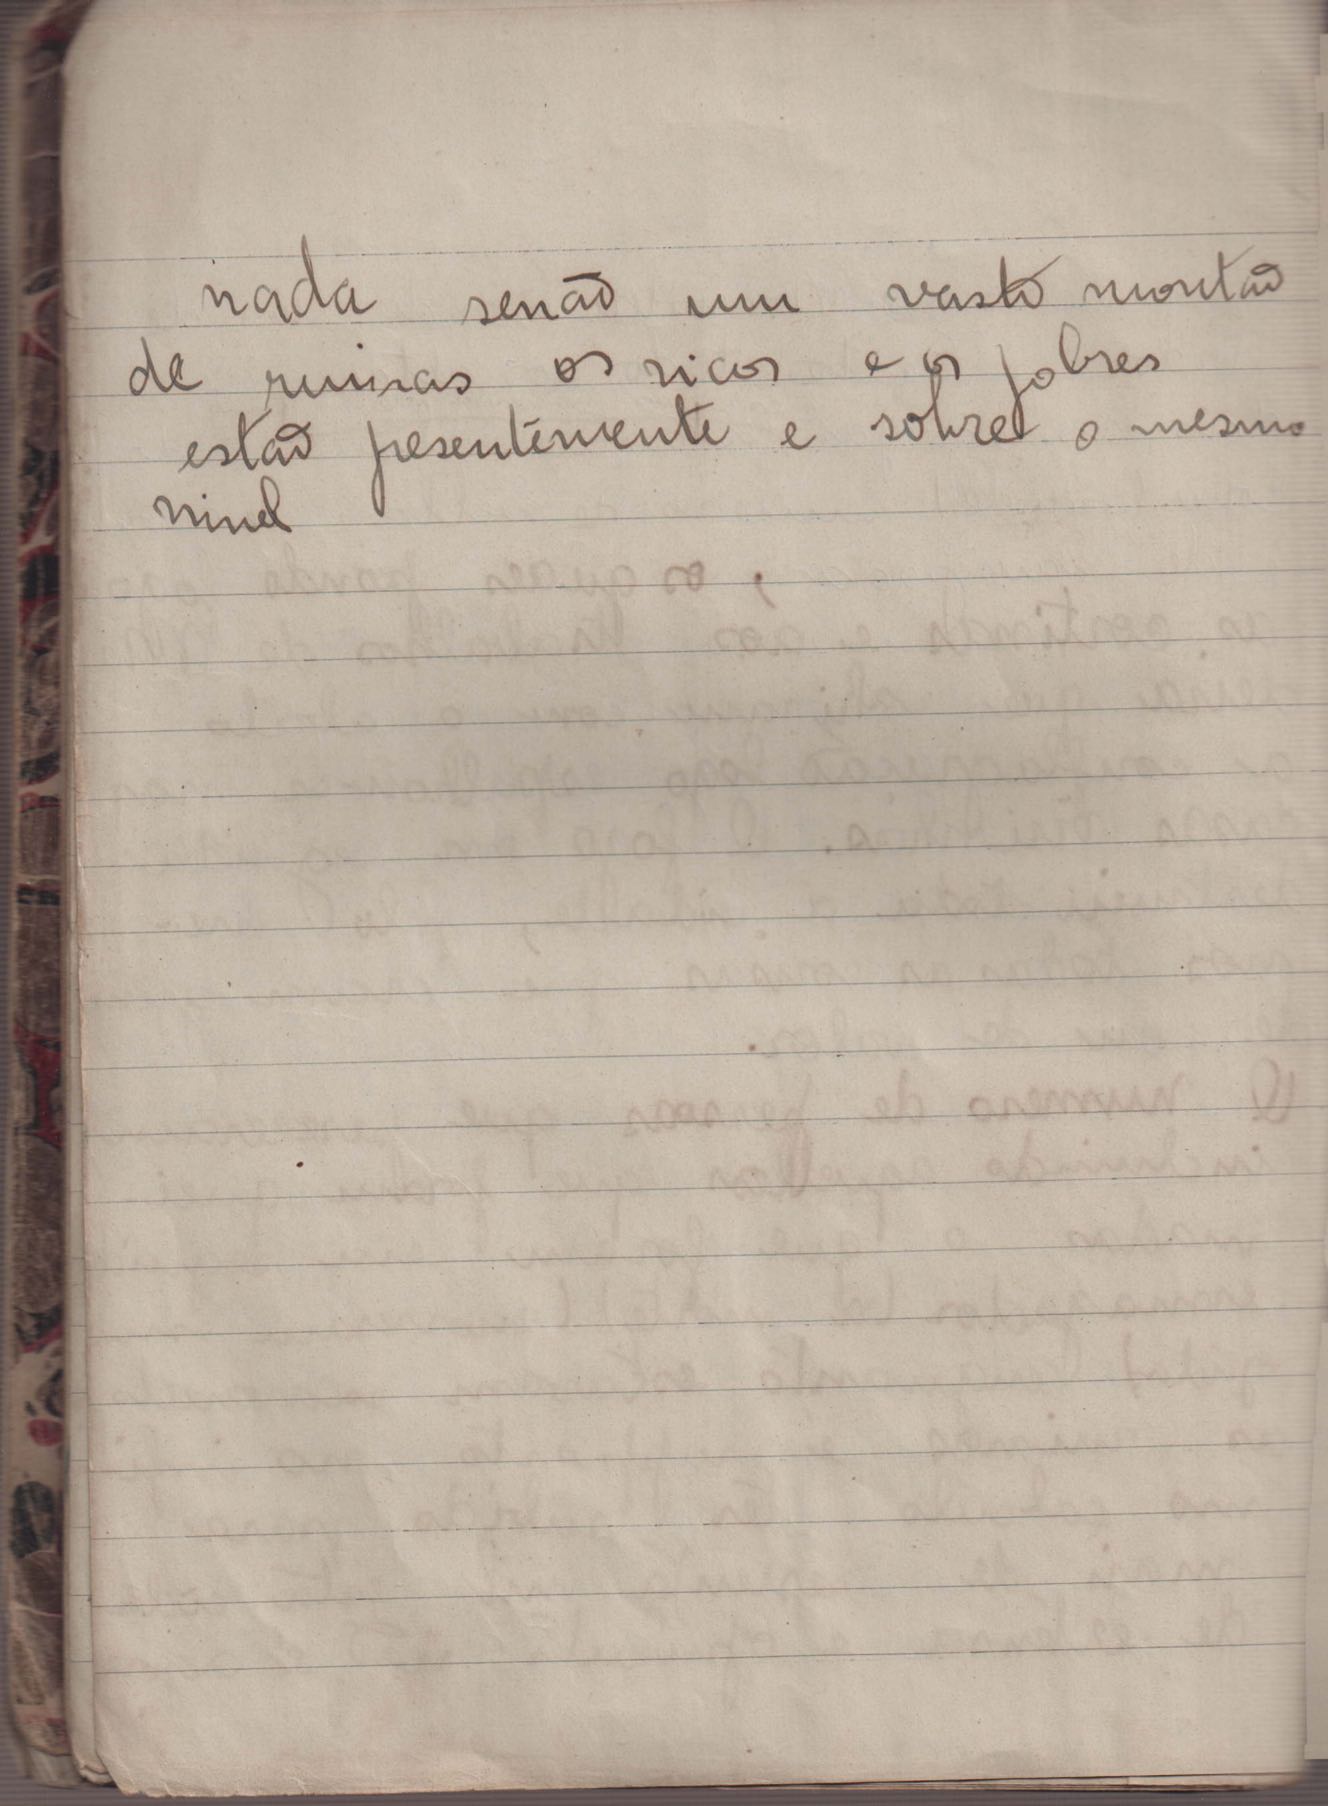 nada senão um vasto montão
de ruinas os ricos e os pobres
estão presentemente e sobre o mesmo
nivel